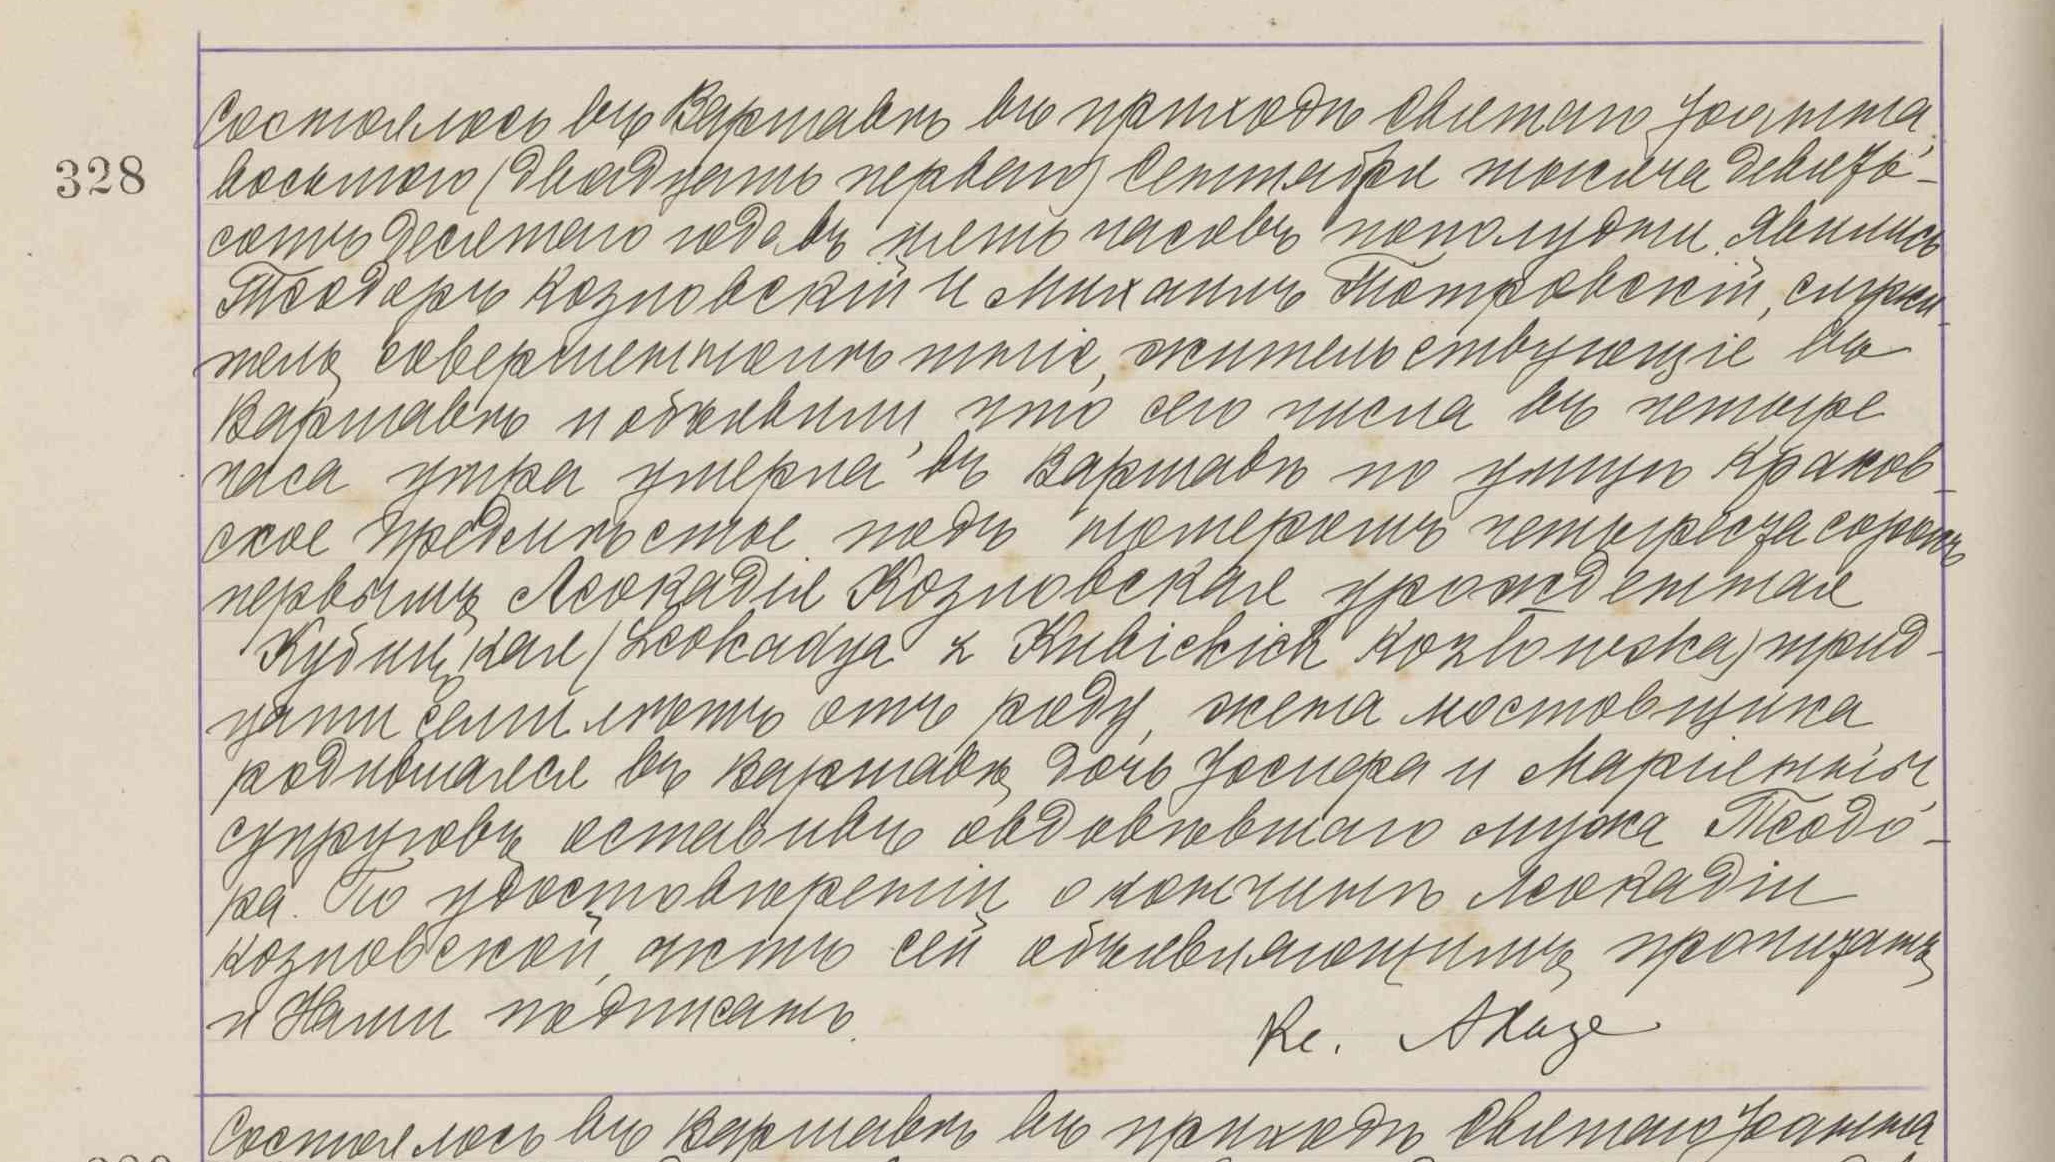 Состоялось въ Варшавѣ въ приходѣ Святаго Іоанна,
328
восьмого (двадцать перваго) Сентября тысяча девять-
сотъ десятаго года въ пять часовъ пополудни. Явились
Теодоръ Козловскій и Михаилъ Піотровскій, служи-
тель, совершеннолѣтніе, жительствующіе въ
Варшавѣ и объявили, что сего числа въ четыре
часа утра умерла въ Варшавѣ по улицѣ Краков-
ское Предмѣстье подъ номеромъ четыреста сорокъ
первымъ, Леокадія Козловская урожденная
Кубицкая (Leokadya z Kubickich Kozłowska) трид-
цати семи лѣтъ отъ роду, жена мостовщика,
родившаяся въ Варшавѣ, дочь Іосифа и Маріянны,
супруговъ, оставивъ овдовѣвшаго мужа Теодо-
ра. По удостовѣреніи о кончинѣ Леокадіи
Козловской, актъ сей объявляющимъ прочитанъ
и Нами подписанъ.
Кс.
Состоялось въ Варшавѣ въ приходѣ Святаго Іоанна